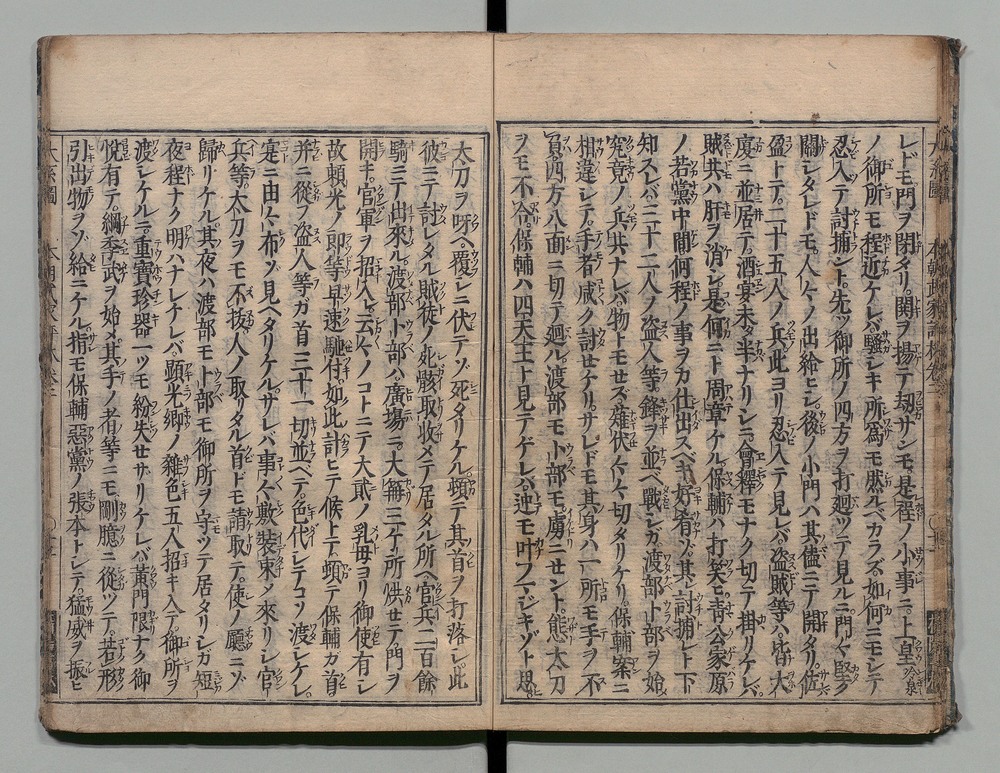 レドモ門ヲ閉タリ。関ヲ揚テ劫サンモ。是程ノ小事ニ上皇冷泉
ノ御所モ程近ケレバ。騒シキ所為モ然ルベカラズ。如何ニモシテ
忍入テ討捕ント。先ヅ御所ノ四方ヲ打廻ツテ見ルニ門々堅ク
關シタレドモ。人々ノ出給ヒシ。後ノ小門ハ其儘ニテ開タリ。佐
盈トテ。二十五人ノ兵此ヨリ忍入テ見レバ。盗賊等ハ皆大
廈ニ並居テ。酒宴未タ半ナリシニ。會釋モナク切テ掛リケレバ。
賊共ハ肝ヲ消シ。是何ニト周章ケル。保輔ハ打笑モ。青公家原
ノ若黨中間何程ノ事ヲカ仕出スベキ。好肴ゾ。其討捕レト下
知スレバ。二十二人ノ盗人等。鋒ヲ並ヘ戰シガ。渡部卜部ヲ始
究竟ノ兵共ナレバ。物トモセズ。薙伏々々切タリケリ。保輔案ニ
相違シテ。手ノ者咸ク討セケリ。サレドモ其身ハ一所モ手ヲ不
負。四方八面ニ切テ廻ル。渡部モ卜部モ虜ニセント。態太刀
ヲモ不合。保輔ハ四天王ト見テゲレバ。逆モ叶フマジキゾト思。
太刀ヲ呀ヘ覆シニ伏テゾ死タリケル。頓テ其首ヲ打落シ。此
彼ニテ討レタル賊徒ノ死骸取收メテ居タル所ヘ。官兵二百餘
騎ニテ出來ル。渡部卜部ハ廣場ニ大篝三ケ所供セテ門ヲ
開キ。官軍ヲ招入レ。云々ノコトニテ大貳ノ乳母ヨリ御使有シ
故。頼光ノ即等早速馳付。如此計ヒテ候ト。上テ頓テ保輔カ首
并ニ從フ盗人等カ首三十一切並ヘテ。色代シテコソ渡シケレ。
寔ニ由々布ゾ見ヘタリケル。サレバ事々敷裝束ノ來リシ官
兵等。太刀ヲモ不抜。人ノ取タル首ドモ請取テ。使ノ廳ニゾ
歸リケル。其夜ハ渡部モト部モ御所ヲ守ツテ居タリシガ。短
夜程ナク明ハナレケレバ。顕光卿ノ雜色五人招キ入テ。御所ヲ
渡シケルニ。重寶珍器一ツモ紛失セサリケレバ。黄門限ナク御
悦有テ。綱季武ヲ始メ。其手ノ者等ニモ剛臆ニ從ツテ。苦形
引出物ヲゾ給ニケル。指モ保輔惡黨ノ張本トシテ。猛威ヲ振ヒ